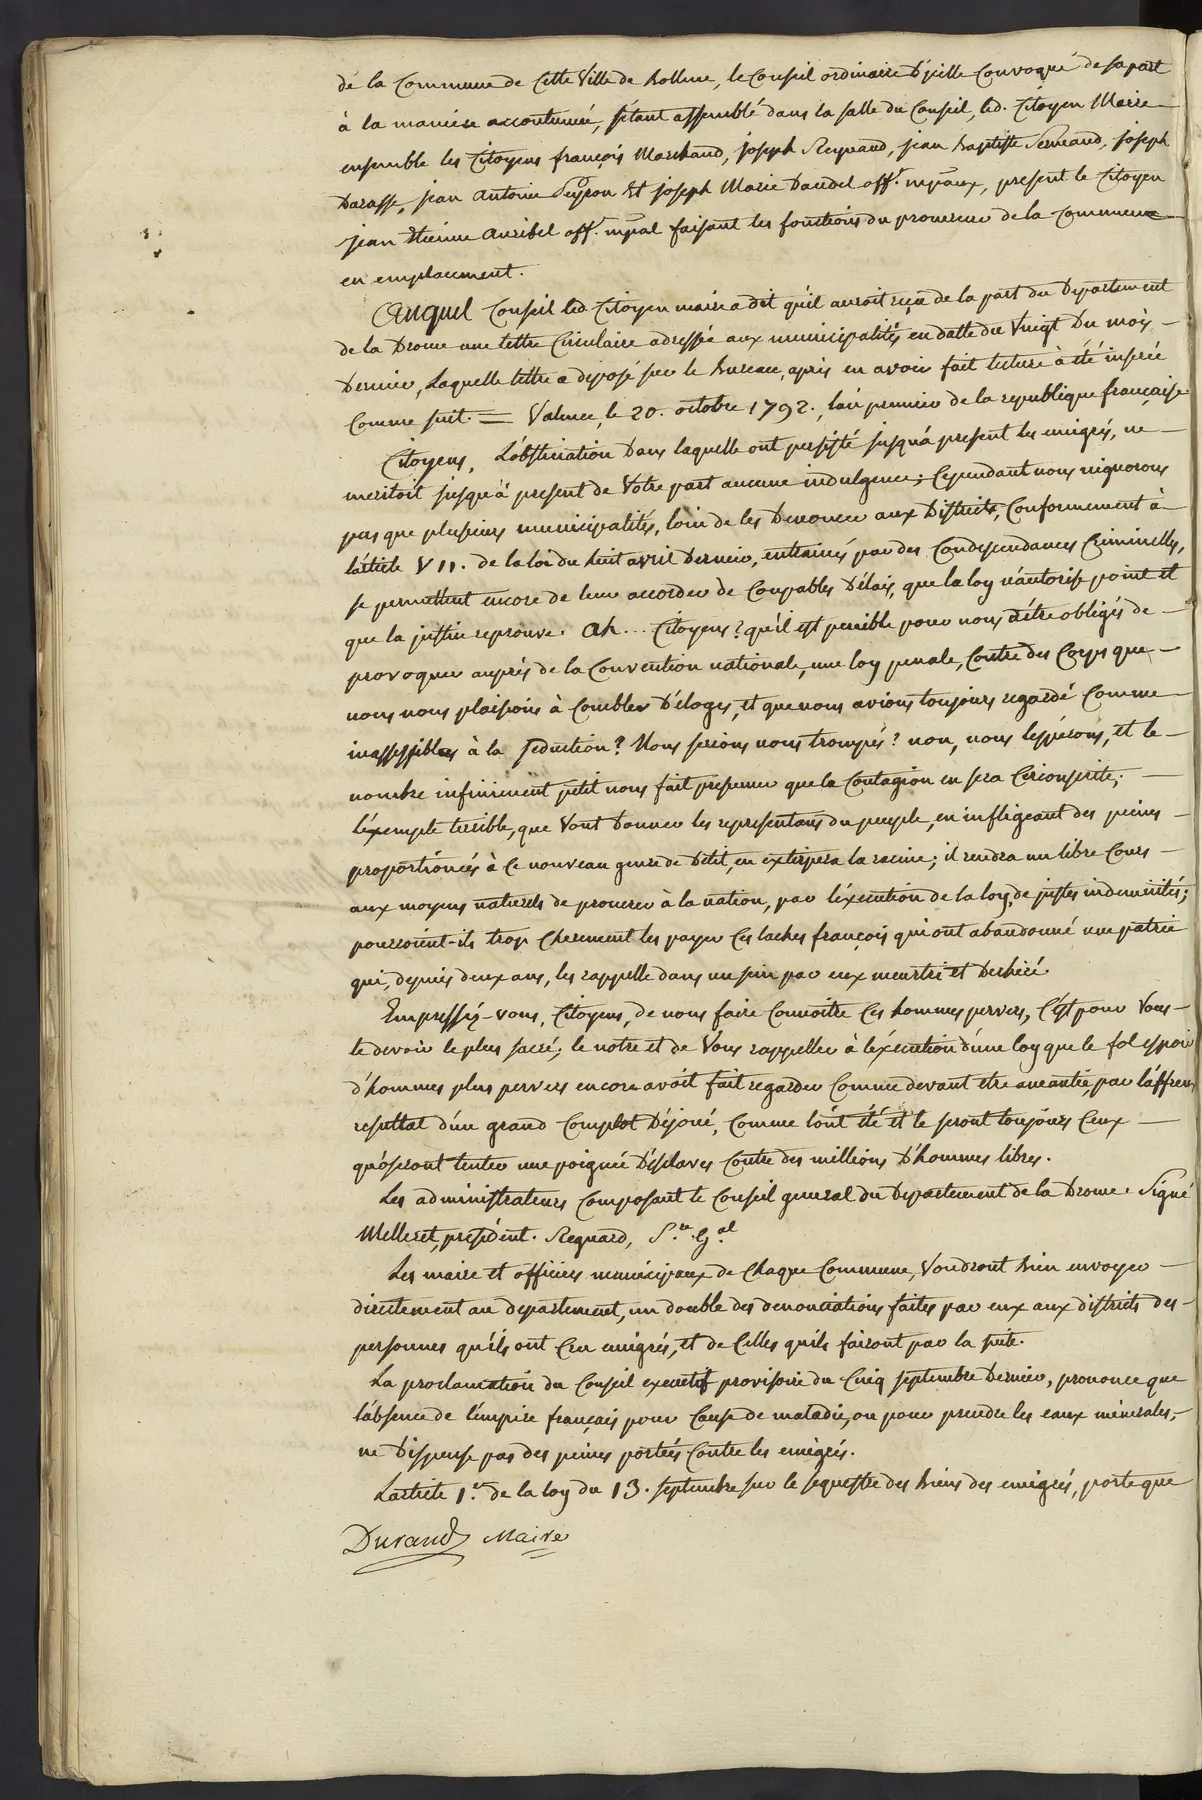 de la Commune de Cette Ville de bollene, le Conseil ordinaire d'jcelle Convoqué de sa part
à la maniere accoutumée, s'étant assemblé dans la salle du Conseil, led. Citoyen Maire
ensemble les Citoyens françois Marchand, joseph Reynaud, jean baptiste Permand, joseph
Darasse, jean antoine Peyron et joseph Marie Daudel offs. mpaux, present le Citoyen
jean Etienne Auribel offr. mpal faisant les fonctions du procureur de la Commune
en emplacement.
Auquel Conseil led. Citoyen maire a dit qu'il auroit reçu de la part du Departement
de la Drome une lettre Circulaire adressée aux municipalités, en datte du Vingt Du mois
Dernier, Laquelle lettre a déposé sur le bureau, après en avoir fait lecture à été inserée
Comme suit. = Valence, le 20. octobre 1792., l'an premier de la republique française
Citoyens, L'obstination Dans laquelle ont persisté jusqu'à present les emigrés, ne
meritoit jusqu'à present de Votre part aucune indulgence; Cependant nous n'ignorons
pas que plusieurs municipalités, loin de les Denoncer aux Districts, Conformement à
l'article VII. de la loi du huit avril Dernier, entrainés par des Condescendances Criminelles,
se permettent encore de leur accorder de Coupables Délais, que la loy n'autorise point et
que la justice reprouve. Ah... Citoyens? qu'il est penible pour nous d'être obligés de
provoquer auprès de la Convention nationale, une loy penale, Contre des Corps que
nous nous plaisions à Combler D'éloges, et que nous avions toujours regardé Comme
inassessibles à la seduction? Nous serions nous trompés? non, nous l'espérons, et le
nombre infiniment petit nous fait presumer que la Contagion en sera Circonscrite;
l'éxemple terrible, que Vont Donner les representans du peuple, en infligeant des peines
proportionées à Ce nouveau genre de Delit, en extirpera la racine; il rendra un libre Cours
aux moyens naturels de procurer à la nation, par l'éxecution de la loy, de justes indemnités;
pourroient-ils trop Cherement les payer Ces laches françois qui ont abandonné une patrie
qui, depuis deux ans, les rappelle dans un sein par eux meurtri et Dechiré.
Empressés-vous, Citoyens, de nous faire Connoitre Ces hommes pervers, C'ést pour Vous
le devoir le plus sacré; le notre est de Vous rappeller à l'éxecution d'une loy que le fol espoir
d'hommes plus pervers encore avoit fait regarder Comme devant etre aneantie, par l'affreux
resultat d'un grand Complot Déjoué, Comme l'ont été et le seront toujours Ceux
qu'oseront tenter une poignée D'ésclaves Contre des millions D'hommes libres.
Les administrateurs Composant le Conseil general du Departement de la Drome. Signé
Melleret, president. Regnard, S.re G.al
Les maire et officiers municipaux de Chaque Commune, Voudront bien envoyer
directement au departement, un double des denonciations faites par eux aux districts des
personnes qu'ils ont Cru emigrés, et de Celles qu'ils fairont par la suite.
La proclamation du Conseil executif provisoire du Cinq septembre Dernier, prononce que
l'absence de l'empire français pour Cause de maladie, ou pour prendre les eaux minerales,
ne Dispense pas des peines portées Contre les emigrés.
L'article 1er. de la loy du 13. septembre sur le sequestre des biens des emigrés, porte que
Durand Maire